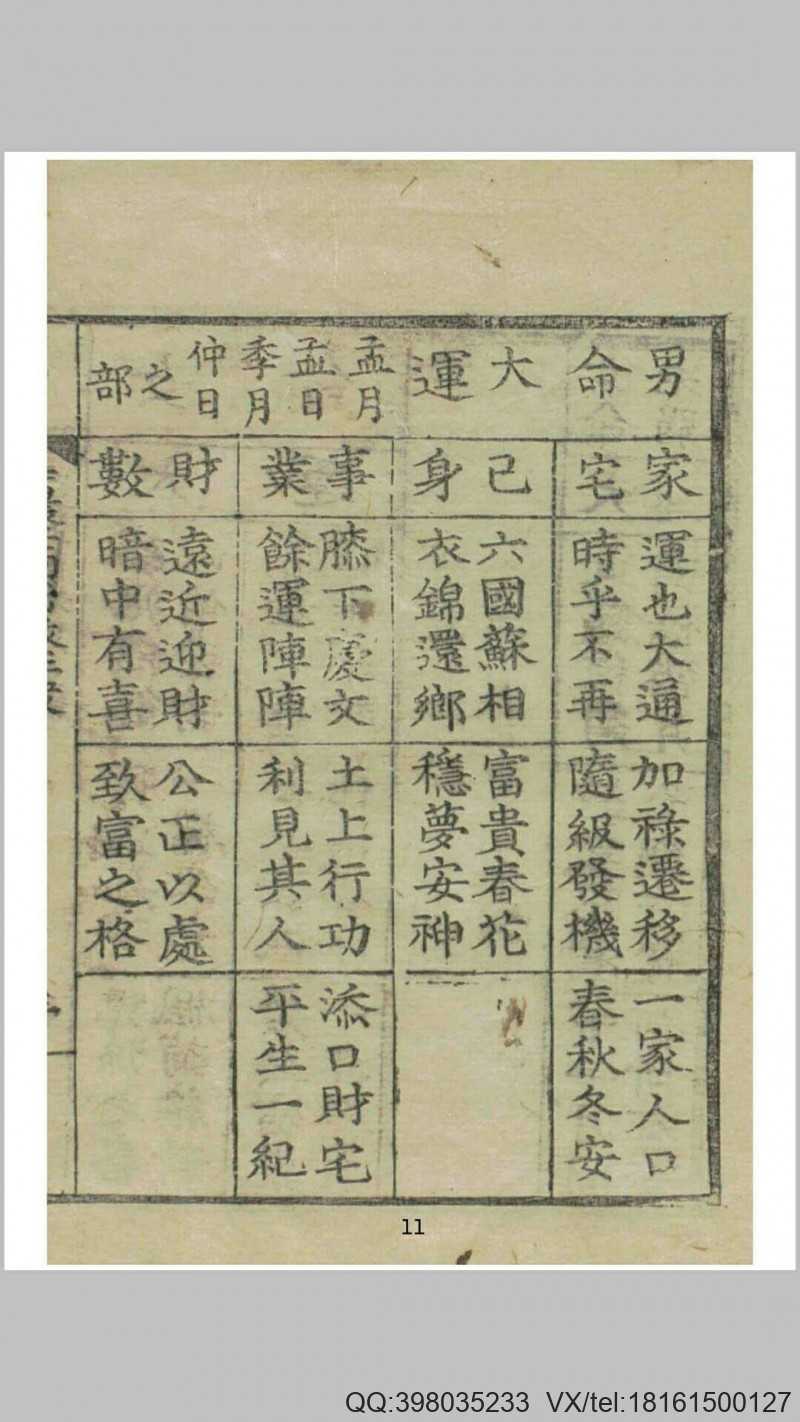 男命
大運
孟月
孟日
季月
仲日
之部
家宅
運也大通
時乎不再
加祿遷移
隨級發機
一家人口
春秋冬安
己身
六國蘇相
衣錦還鄉
富貴春花
穩夢安神
事業
膝下慶文
餘運陣陣
土上行功
利見其人
添口財宅
平生一紀
財數
遠近迎財
暗中有喜
公正以處
致富之格
11
QQ:398035233 VX/tel:18161500127